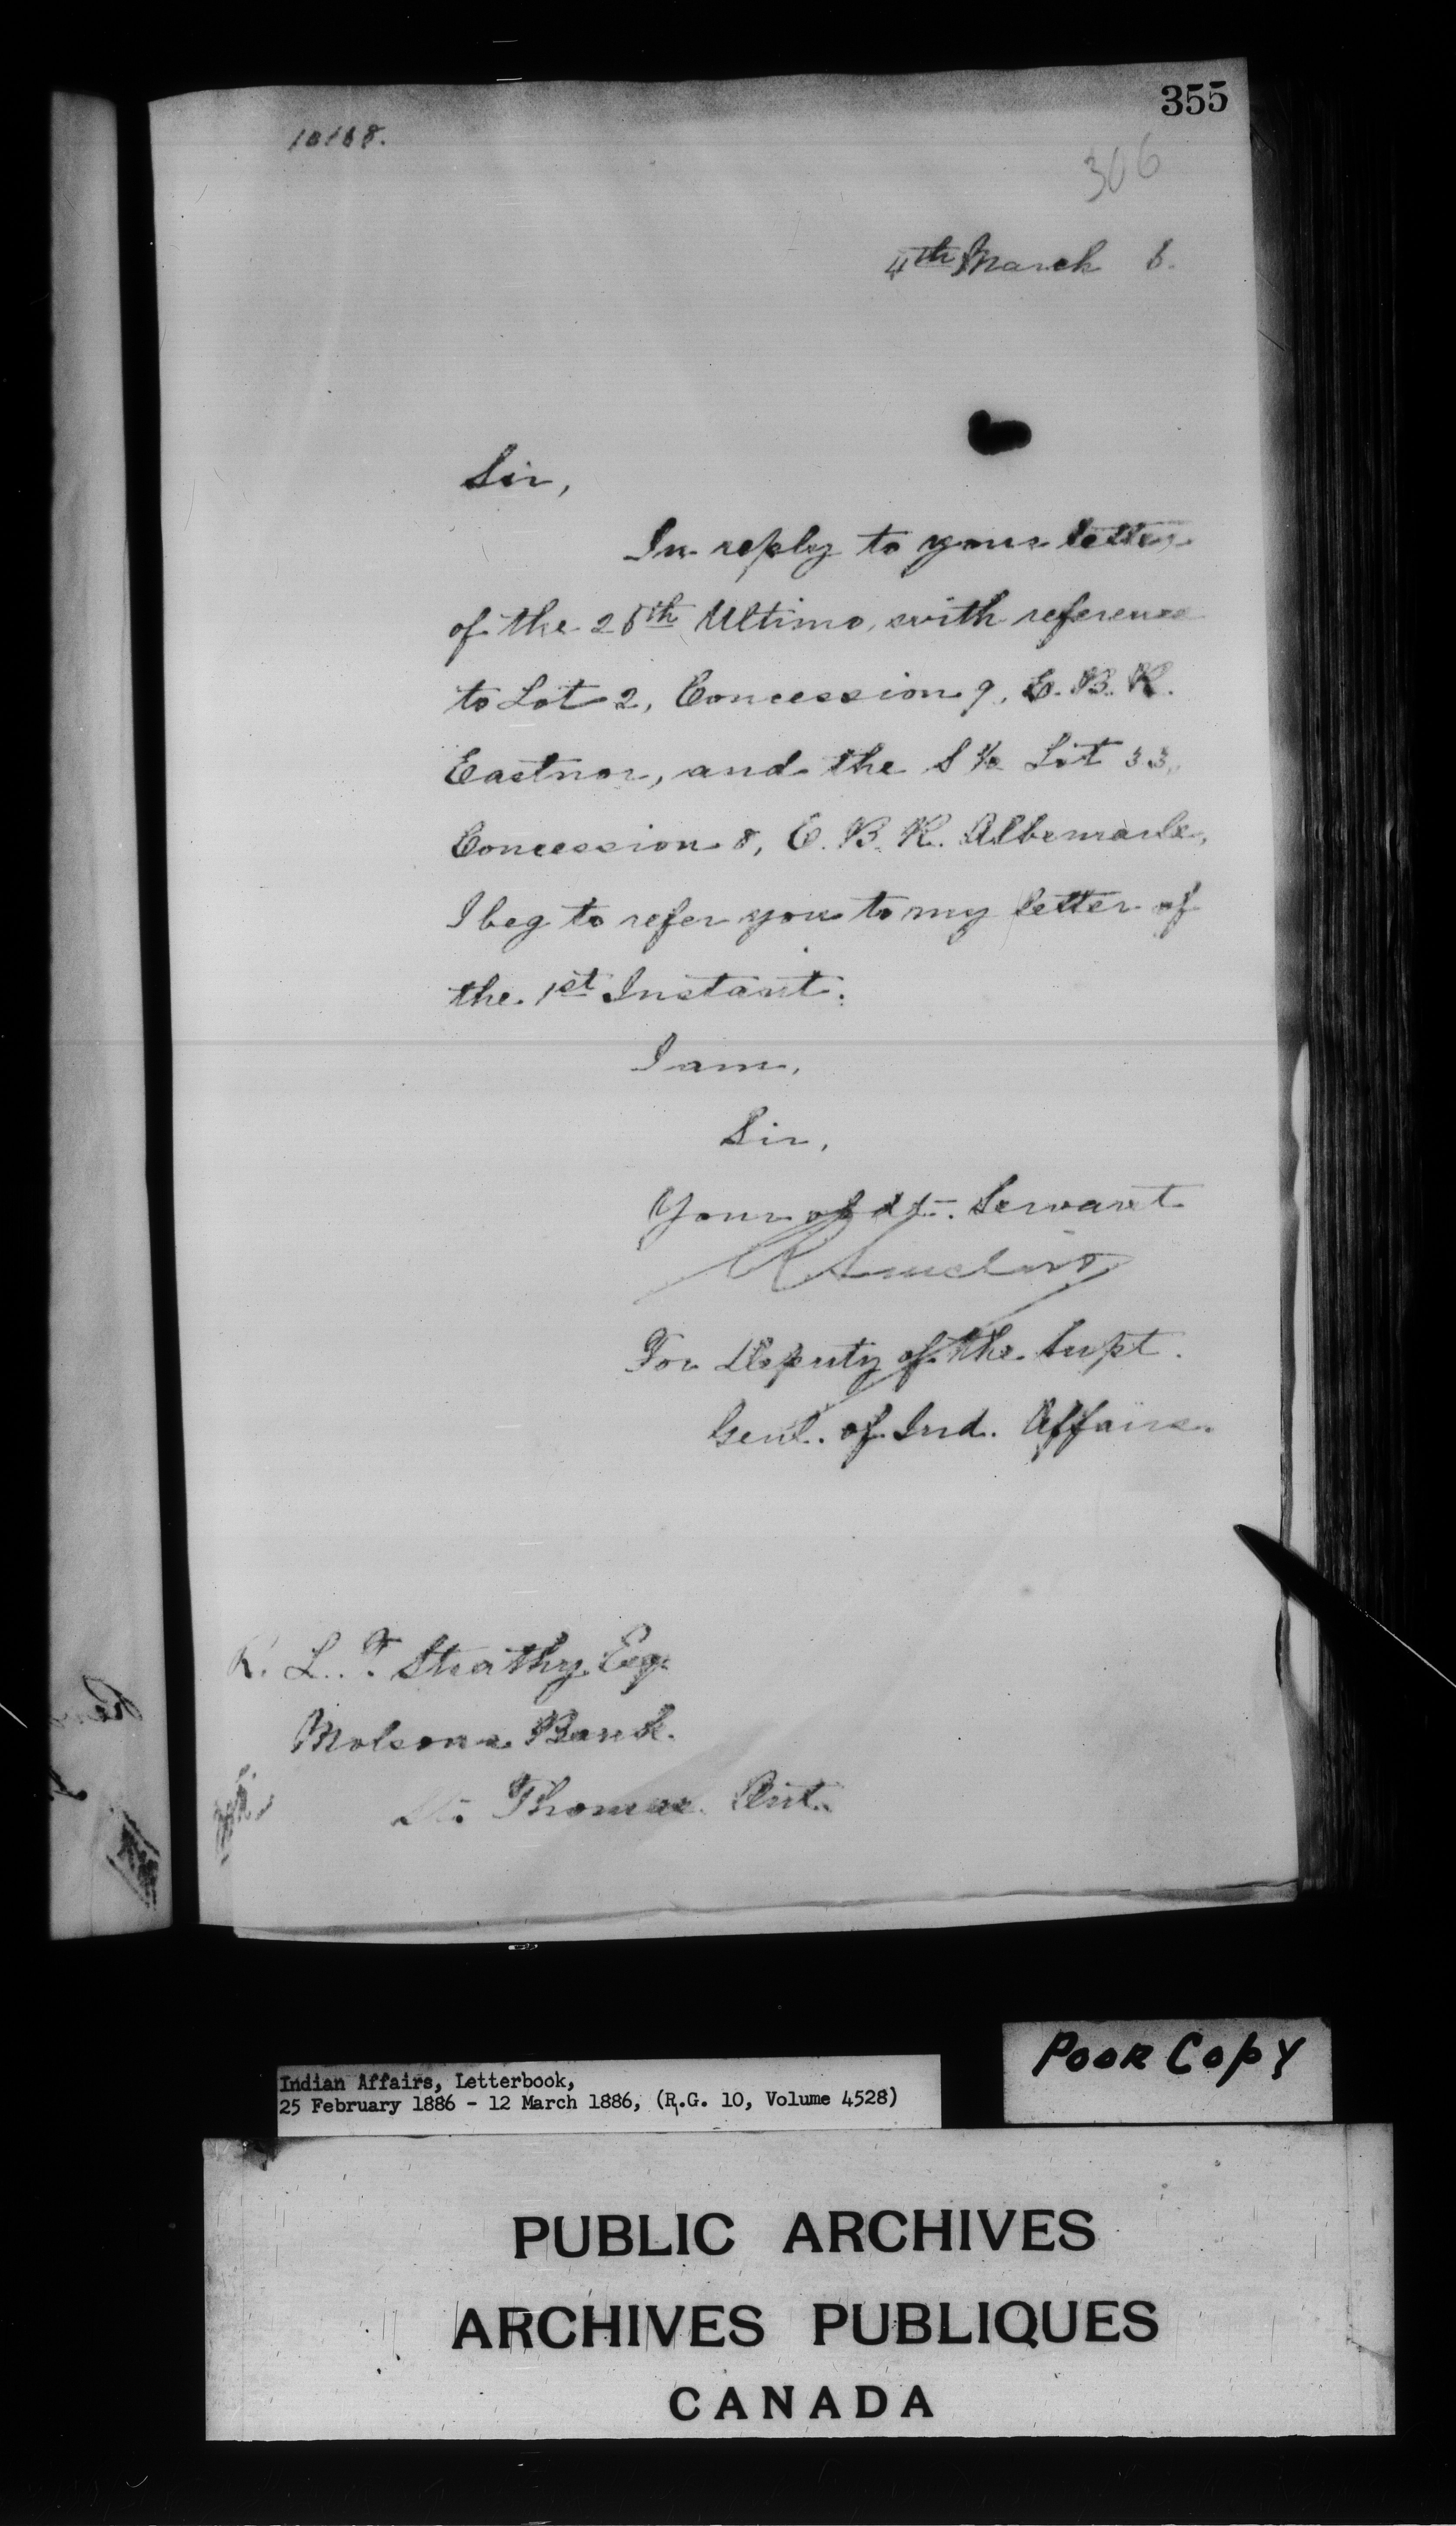 355
10168.
306
4th March 6.
Sir,
In reply to your letter
of the 26th Ultimo, with reference
to Lot 2, Concession 9, E. B. R.
Eastnor, and the S ½ Lot 33,
Concession 8, E. B. R. Albemarle,
I beg to refer you to my letter of
the 1st Instant.
I am,
Sir,
Your obdt. Servant
For Deputy of the Supt.
Genl. of Ind. Affairs.
R. L. T. Strathy Esq.
Molsons Bank.
St. Thomas. Ont.
Poor Copy
Indian Affairs, Letterbook,
25 February 1886 - 12 March 1886, (R.G. 10, Volume 4528)
PUBLIC ARCHIVES
ARCHIVES PUBLIQUES
CANADA